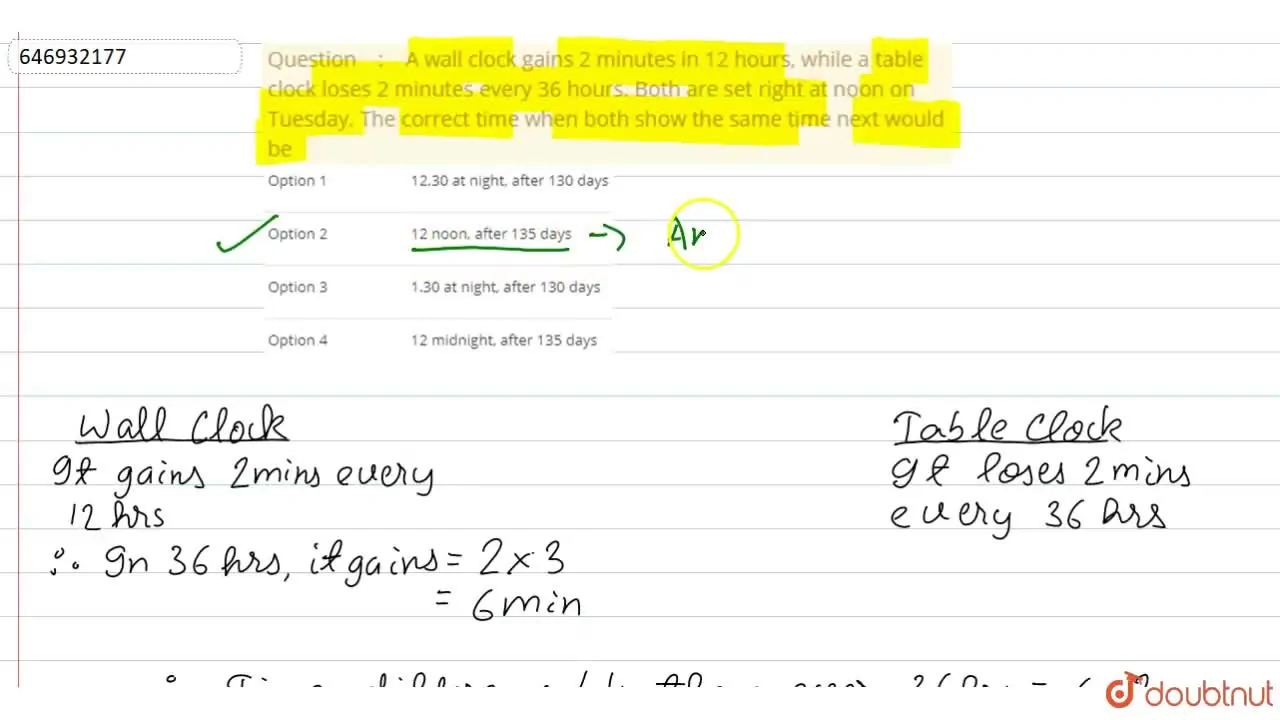 646932177
Question : A wall clock gains 2 minutes in 12 hours, while a table
clock loses 2 minutes every 36 hours. Both are set right at noon on
Tuesday. The correct time when both show the same time next would
be
Option 1 12.30 at night, after 130 days
Option 2 12 noon, after 135 days → Ar
Option 3 1.30 at night, after 130 days
Option 4 12 midnight, after 135 days
Wall Clock
It gains 2mins every
12 hrs
∴ In 36 hrs, it gains = 2 × 3
= 6 min
Table Clock
It loses 2 mins
every 36 hrs
doubtnut